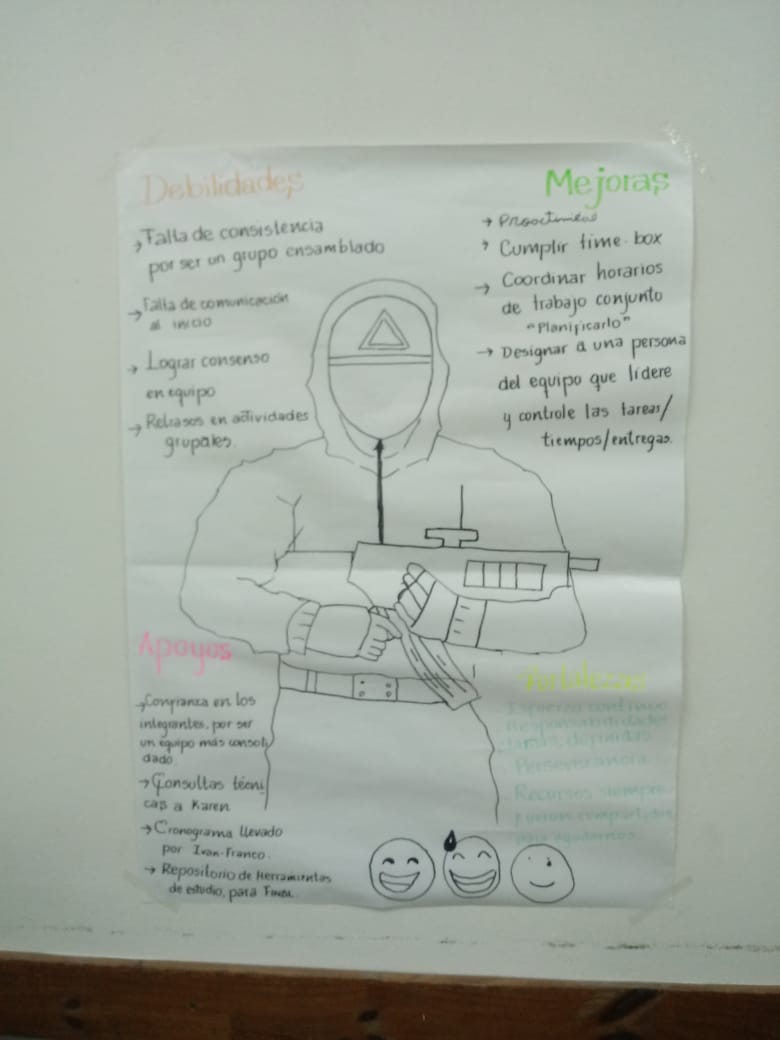 Debilidades
→ Falta de consistencia
por ser un grupo ensamblado
→ Falta de comunicación
al inicio
→ Lograr consenso
en equipo
→ Retrasos en actividades
grupales.
Mejoras
→ Proactividad
→ Cumplir time-box
→ Coordinar horarios
de trabajo conjunto
"Planificarlo"
→ Designar a una persona
del equipo que lidere
y controle las tareas/
tiempos/entregas.
Apoyos
→ Confianza en los
integrantes, por ser
un equipo más consoli
dado.
→ Consultas técni
cas a Karen
→ Cronograma llevado
por Ivan-Franco.
→ Repositorio de Herramientas
de estudio, para FINAL.
Fortalezas
Esfuerzo continuo
Responsabilidades
definidas
Perseverancia
Recursos siempre
fueron compartidos
para ayudarnos